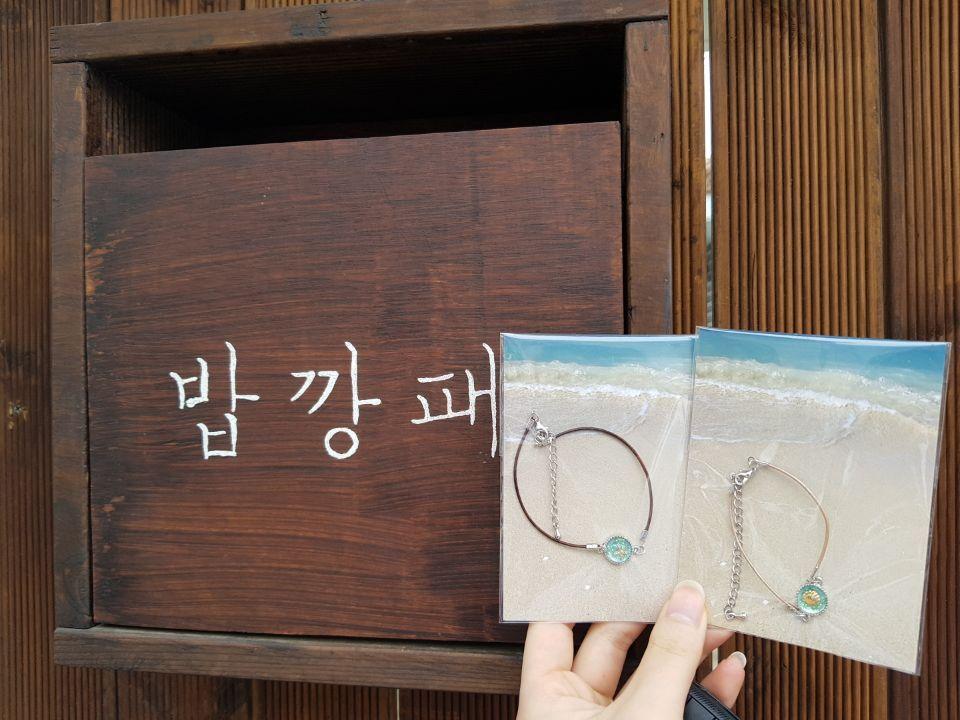 밥 깡 패